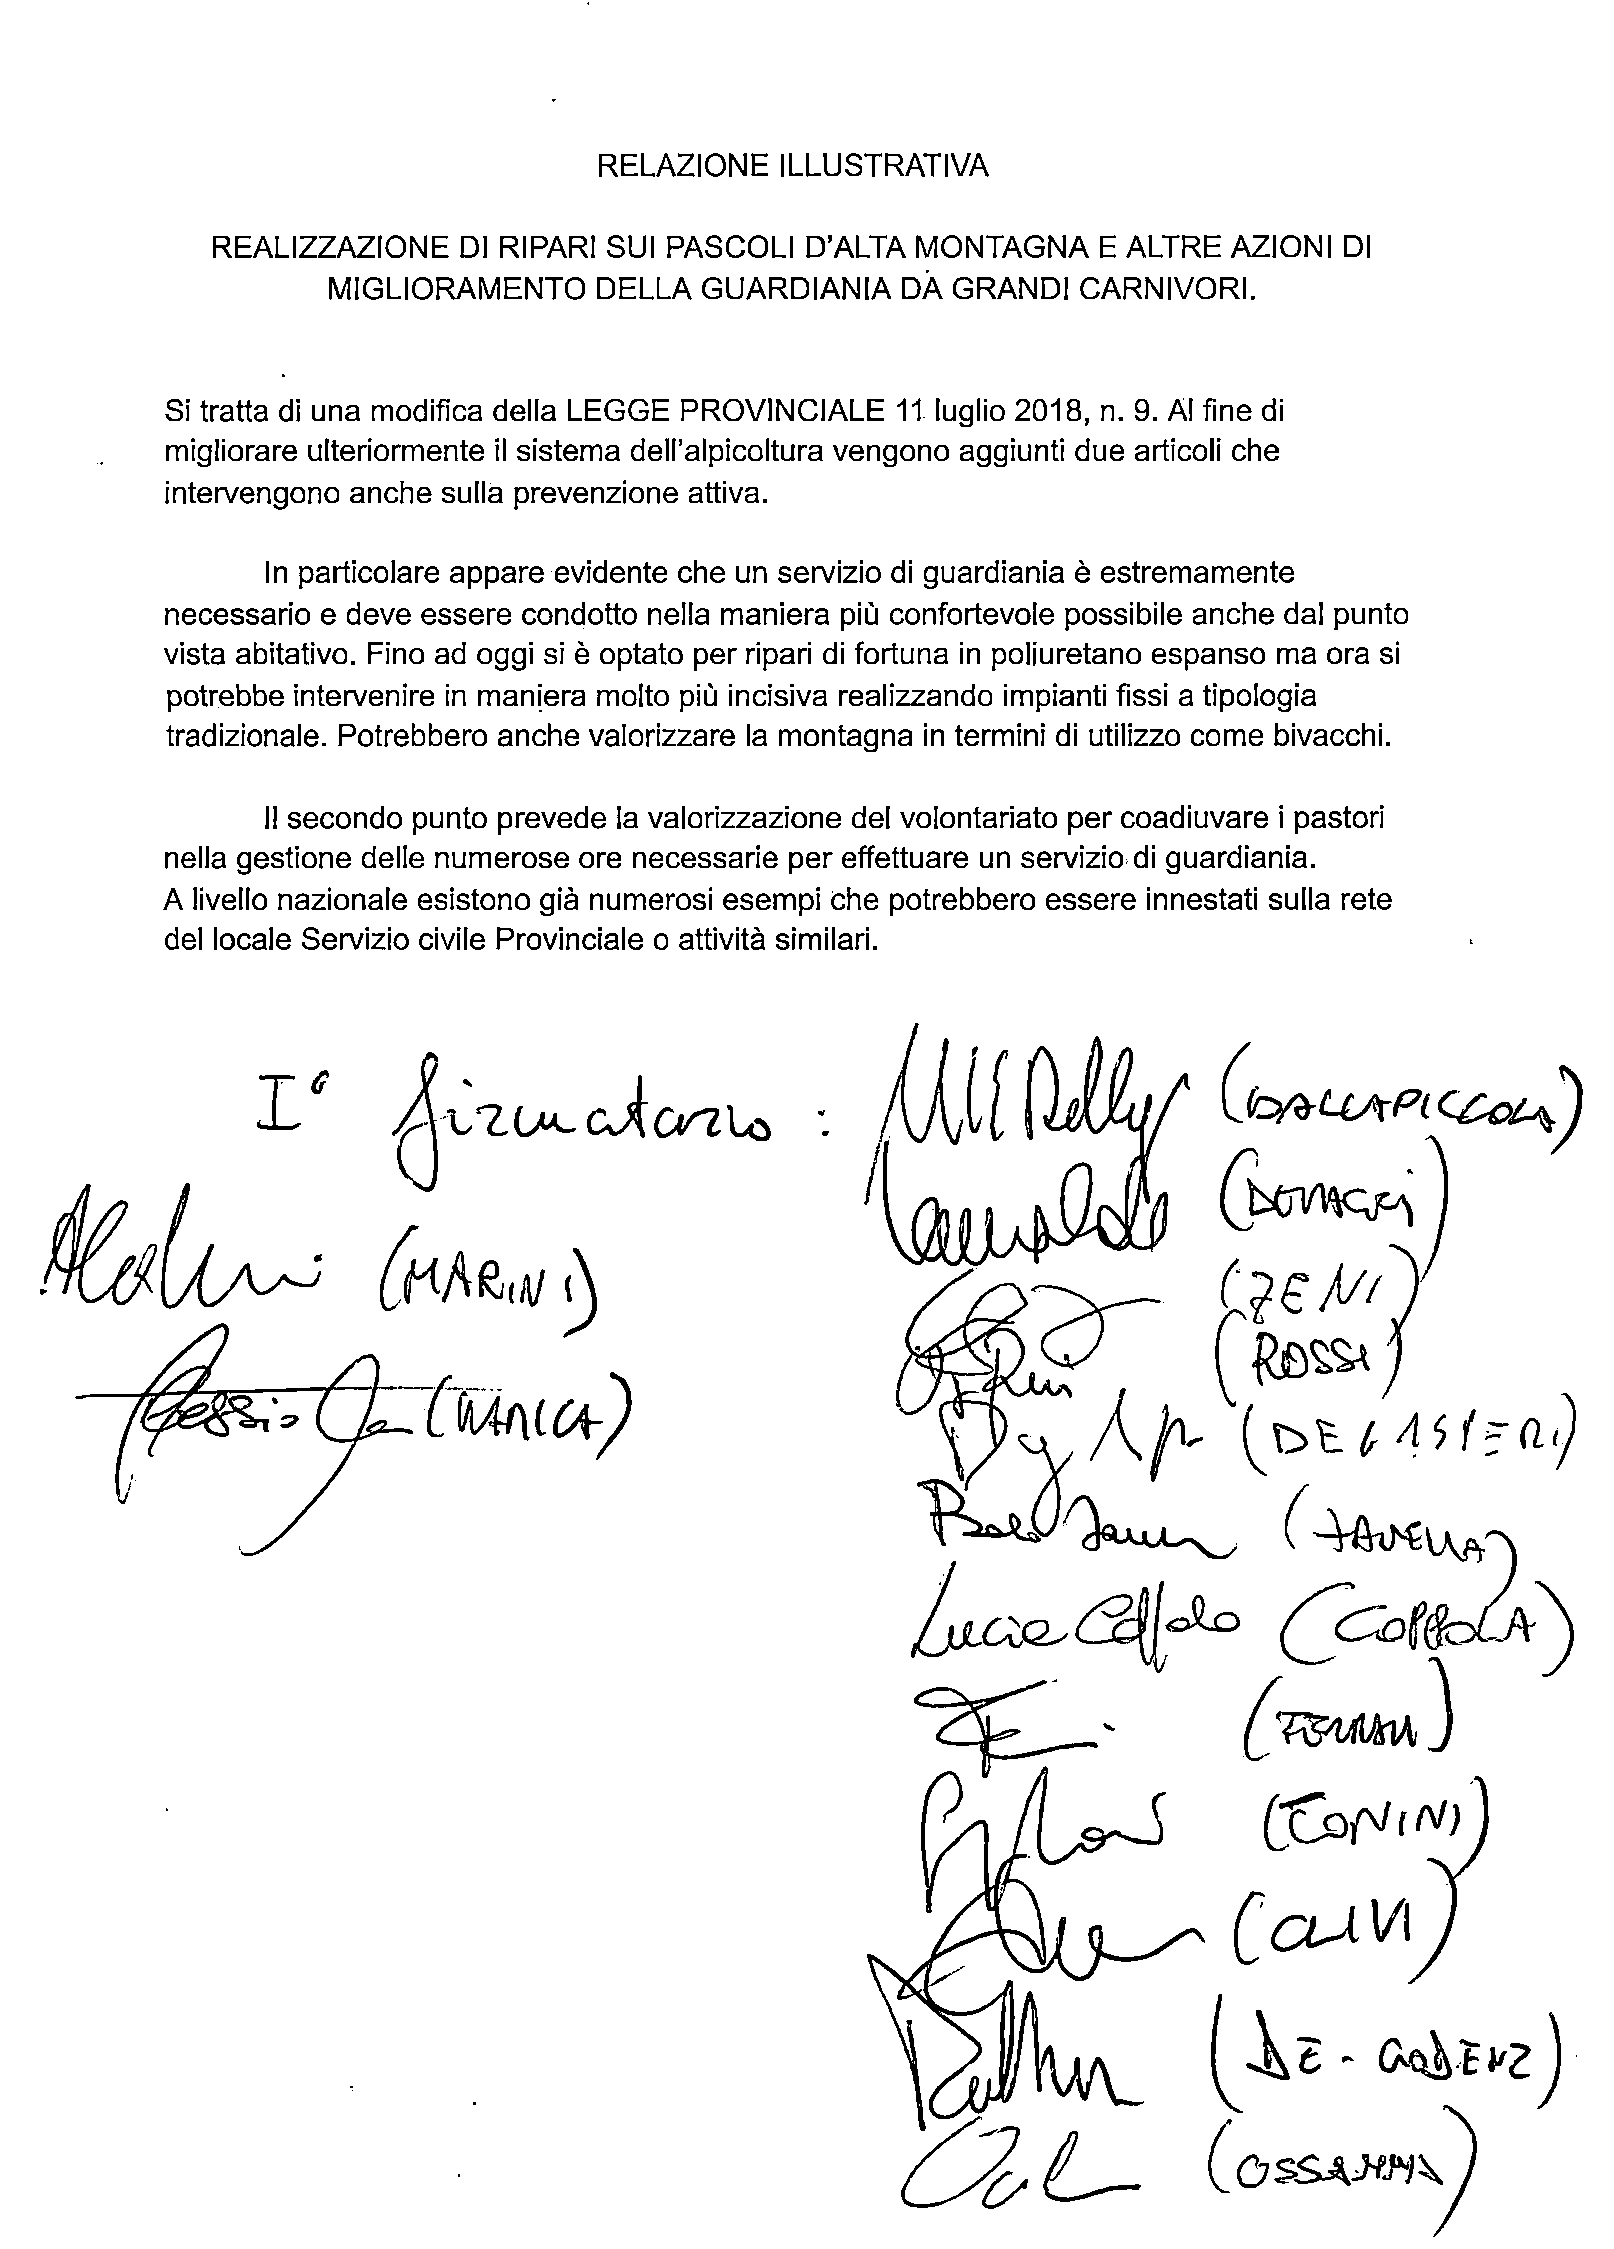 RELAZIONE ILLUSTRATIVA
REALIZZAZIONE DI RIPARI SUI PASCOLI D'ALTA MONTAGNA E ALTRE AZIONI DI
MIGLIORAMENTO DELLA GUARDIANIA DA GRANDI CARNIVORI.
Si tratta di una modifica della LEGGE PROVINCIALE 11 luglio 2018, n. 9. Al fine di
migliorare ulteriormente il sistema dell'alpicoltura vengono aggiunti due articoli che
intervengono anche sulla prevenzione attiva.
In particolare appare evidente che un servizio di guardiania è estremamente
necessario e deve essere condotto nella maniera più confortevole possibile anche dal punto
vista abitativo. Fino ad oggi si è optato per ripari di fortuna in poliuretano espanso ma ora si
potrebbe intervenire in maniera molto più incisiva realizzando impianti fissi a tipologia
tradizionale. Potrebbero anche valorizzare la montagna in termini di utilizzo come bivacchi.
Il secondo punto prevede la valorizzazione del volontariato per coadiuvare i pastori
nella gestione delle numerose ore necessarie per effettuare un servizio di guardiania.
A livello nazionale esistono già numerosi esempi che potrebbero essere innestati sulla rete
del locale Servizio civile Provinciale o attività similari.
I° firmatario: (DALLAPICCOLA)
(MARINI)
Alessio (MANICA)
(ZENI)
(ROSSI)
(DEGASPERI)
(ZANELLA)
Lucia Coppola (COPPOLA)
(FERRARI)
(TONINI)
(OLIVI)
(DE-GODENZ)
(OSSANNA)